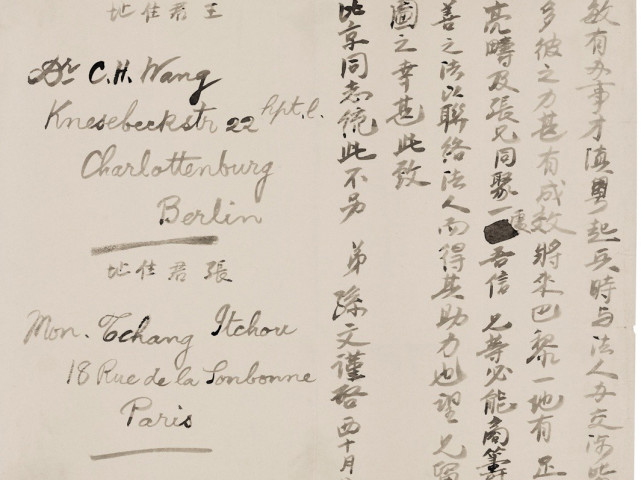 敏有办事才滇粤起兵時与法人办交涉
多彼之力甚有成效將來巴黎一地有足
亮疇及張兄同聚一處吾信 兄等必能商籌
善之法以聯絡法人而得其助力也望 兄留
圖之幸甚此致
比京同志統此不另 弟孫文謹啓 西十月
王君住址
Dr C.H. Wang
Knesebeckstr 22 hpt. l.
Charlottenburg
Berlin
張君住址
Mon. Tchang Itchou
18 Rue de la Sonbonne
Paris